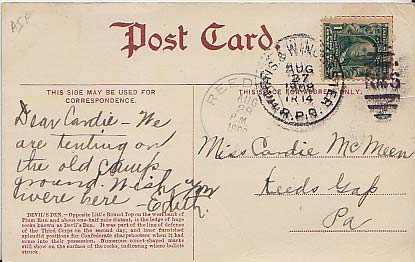 AIA
Post Card
THIS SIDE MAY BE USED FOR
CORRESPONDENCE.
THIS SIDE IS FOR THE ADDRESS.
HARRIS. & WINCHESTER
AUG
27
1908
TR 14
R.P.O.
REED
AUG
28
P.M.
1908
Dear Candie - We
are tenting on
the old camp
ground. Wish you
were here - Edith.
DEVIL'S DEN.—Opposite Little Round Top on the west bank of
Plum Run and about one-half mile distant, is the ledge of huge
rocks known as Devil's Den. It was part of the line of defense
of the Third Corps on the second day, and later furnished
splendid positions for Confederate sharpshooters when it had
come into their possession. Numerous comet-shaped marks
still show on the surface of the rocks, indicating where bullets
struck.
Miss Candie McMeen
Reeds Gap
Pa